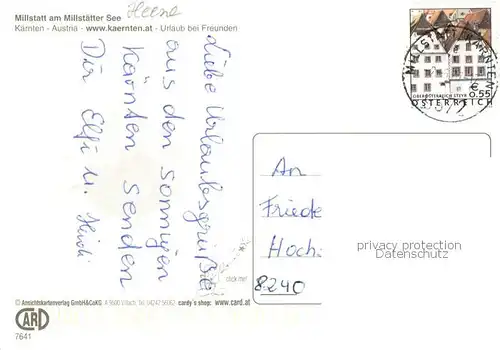 Millstatt am Millstätter See
Heene
Kärnten - Austria - www.kaernten.at - Urlaub bei Freunden
MILLSTATT KÄRNTEN
€ 0.55
OBERÖSTERREICH STEYR
ÖSTERREICH
9872
Liebe Urlaubesgrüße
aus den sonnigen
Kärnten senden
Dir Elfi u. Heidi
An
Friede
Hoch
8240
privacy protection
Datenschutz
click me!
© Ansichtskartenverlag GmbH&CoKG A 9500 Villach, Tel. 04247/56062 cardy's shop: www.card.at
CARD
7641